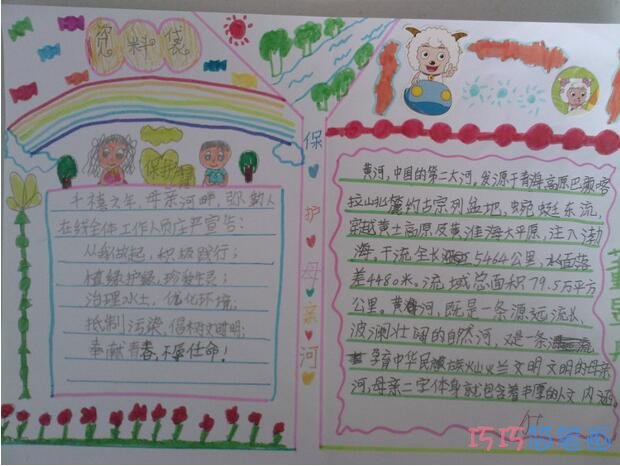 资料袋
保护
千禧之年,母亲河畔,
在线全体工作人员庄严宣告:
从我做起,积极践行;
植绿护绿,珍爱生灵;
治理水土,优化环境;
抵制污染,倡树文明;
奉献青春,不辱使命!
保护母亲河
黄河,中国的第二大河。发源于青海高原巴颜喀
拉山北麓约古宗列盆地,蜿蜒东流,
穿越黄土高原及黄淮海大平原,注入渤
海。干流全长5464公里,水面落
差4480米。流域总面积79.5万平方
公里。黄河,既是一条源远流长、
波澜壮阔的自然河,又是一条
孕育中华民族 文明 文明的母亲
河,母亲二字体身就包含着丰厚的人文内涵。
巧巧简笔画